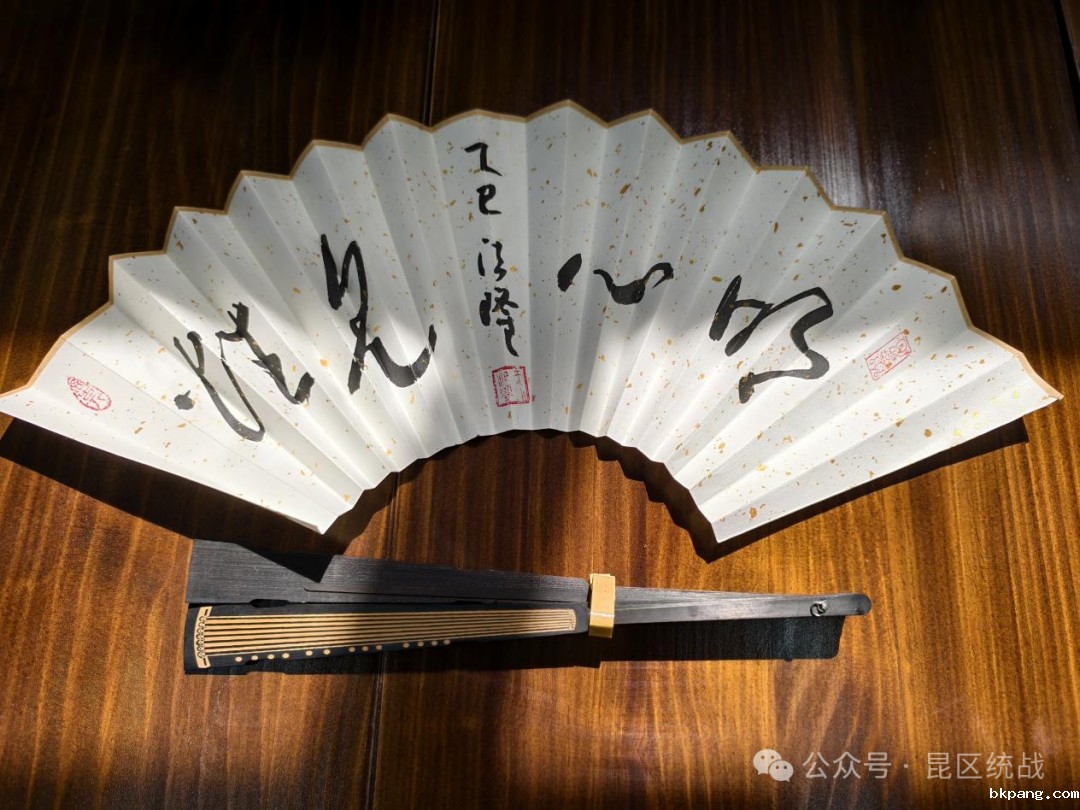 明心见性
乙巳 法隆
公众号·昆区统战
bkpang.com